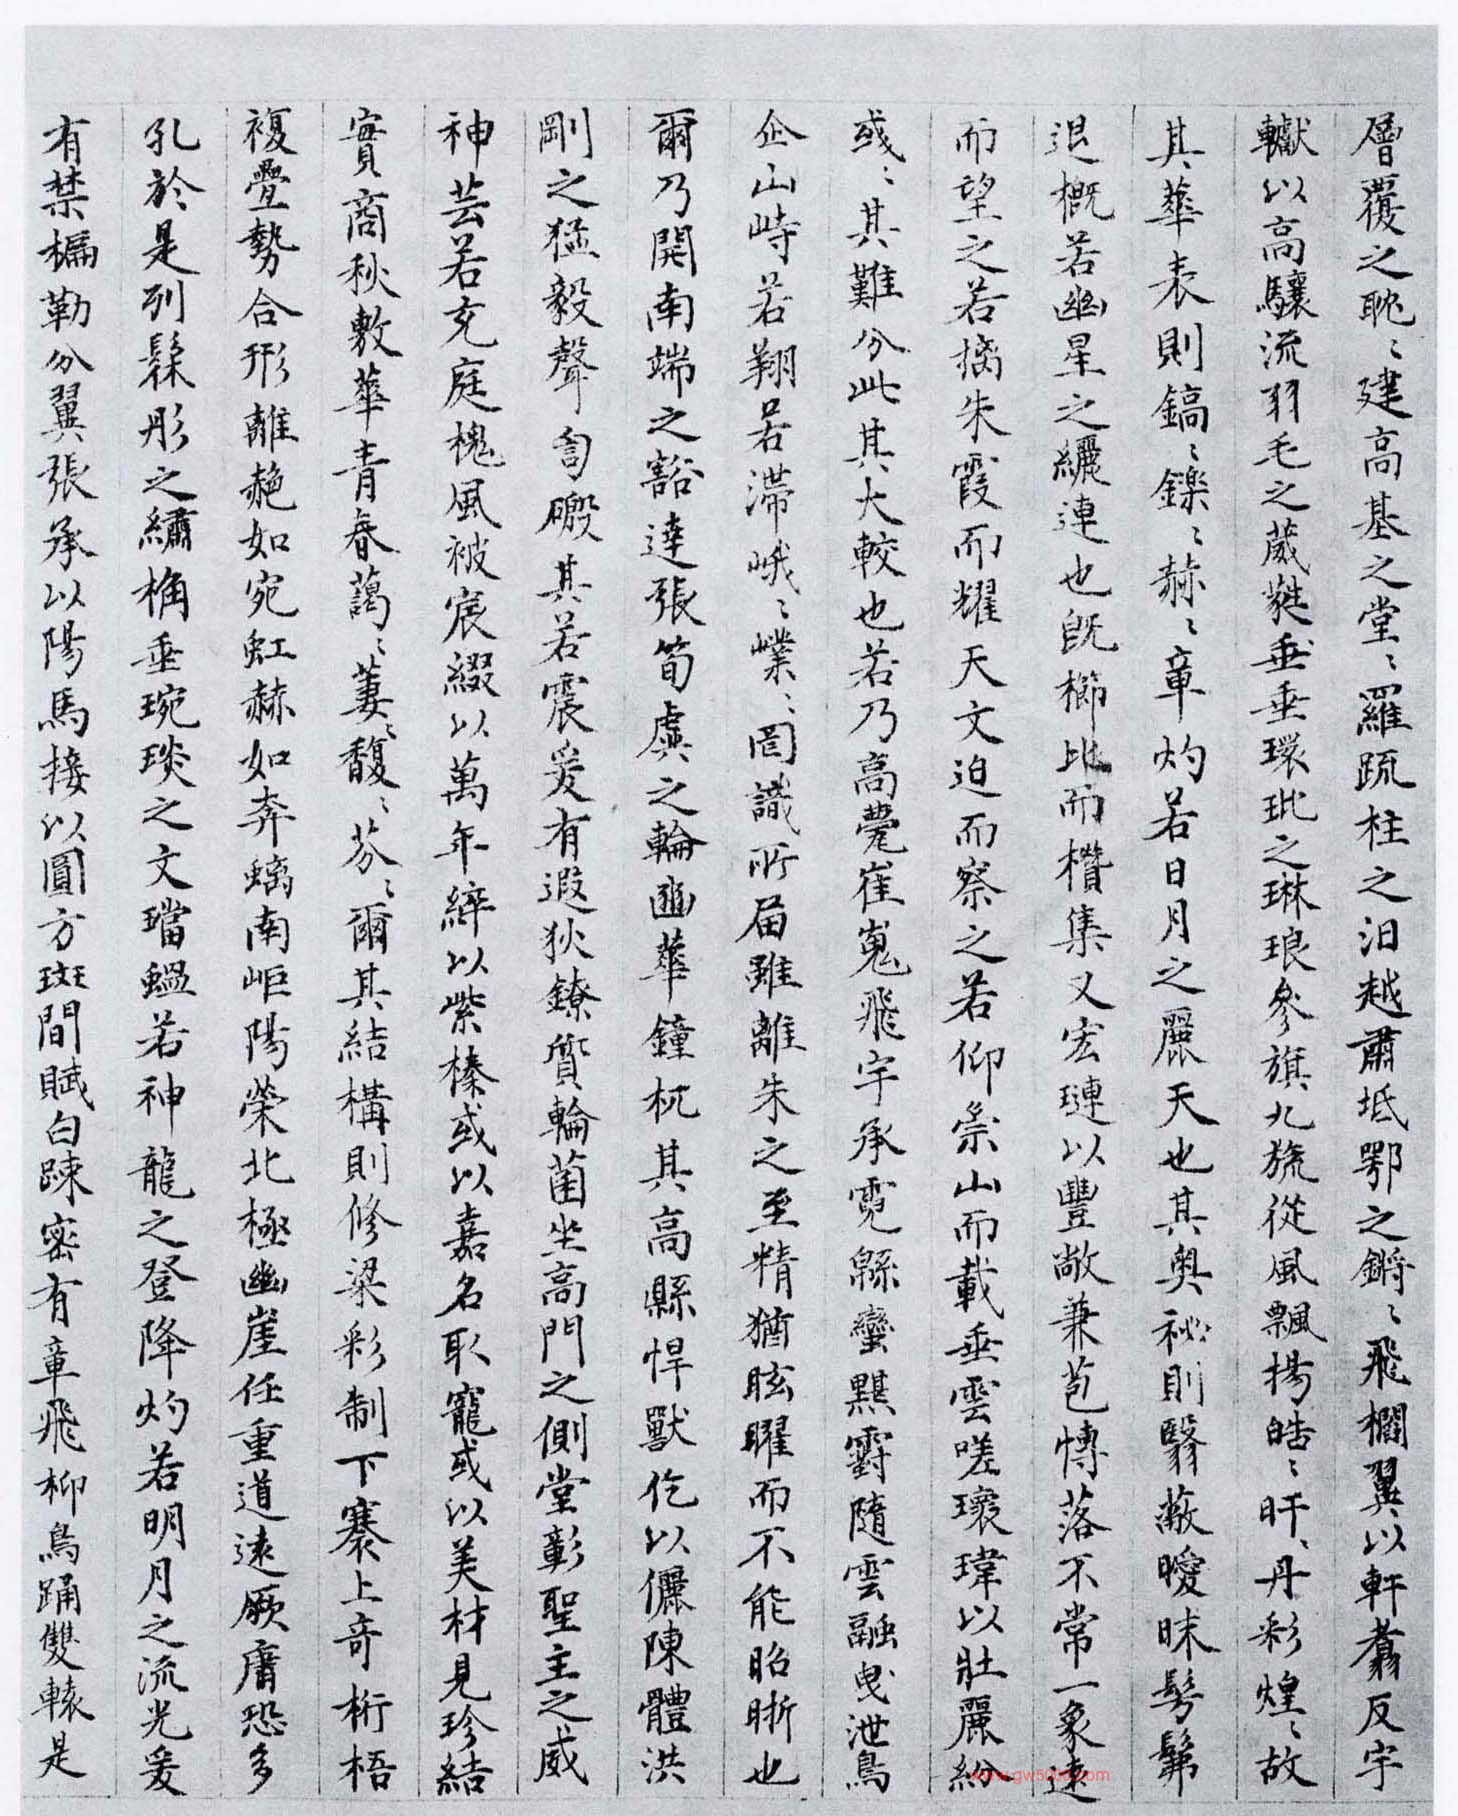 層覆之耽〻建高基之堂〻羅疏柱之汩越肅坻鄂之鏘〻飛櫩翼以軒翥反宇
轍以高驤流羽毛之葳蕤垂環玭之琳琅參旗九旒從風飄揚皓〻旰〻丹彩煌〻故
其華表則鎬〻鑠〻赫〻章灼若日月之麗天也其奧秘則翳蔽曖昧髣髴
退概若幽星之纚連也既櫛比而欑集又宏璉以豐敞兼苞慱落不常一象遠
而望之若摛朱霞而耀天文迫而察之若仰崇山而載垂雲嗟瓌瑋以壯麗紛
彧〻其難分此其大較也若乃高甍崔嵬飛宇承霓緜蠻黮䨴隨雲融曳泄鳥
企山峙若翔若滯峨〻嶫〻罔識所届雖離朱之至精猶眩曜而不能昭晣也
爾乃開南端之豁達張筍虡之輪豳華鐘杌其高縣悍獸仡以儷陳體洪
剛之猛毅聲訇磤其若震爰有遐狄鐐質輪菌坐高門之側堂彰聖主之威
神芸若充庭槐風被宸綴以萬年綷以紫榛或以嘉名取寵或以美材見珍結
實商秋敷華青春藹〻萋〻馥〻芬〻爾其結構則修梁彩制下褰上奇桁梧
複疊勢合形離赩如宛虹赫如奔螭南岠陽榮北極幽崖任重道遠厥庸孔多
於是列髹彤之繡桷垂琬琰之文璫蝹若神龍之登降灼若明月之流光爰
有禁楄勒分翼張承以陽馬接以圓方斑間賦白踈密有章飛枊鳥踊雙轅是